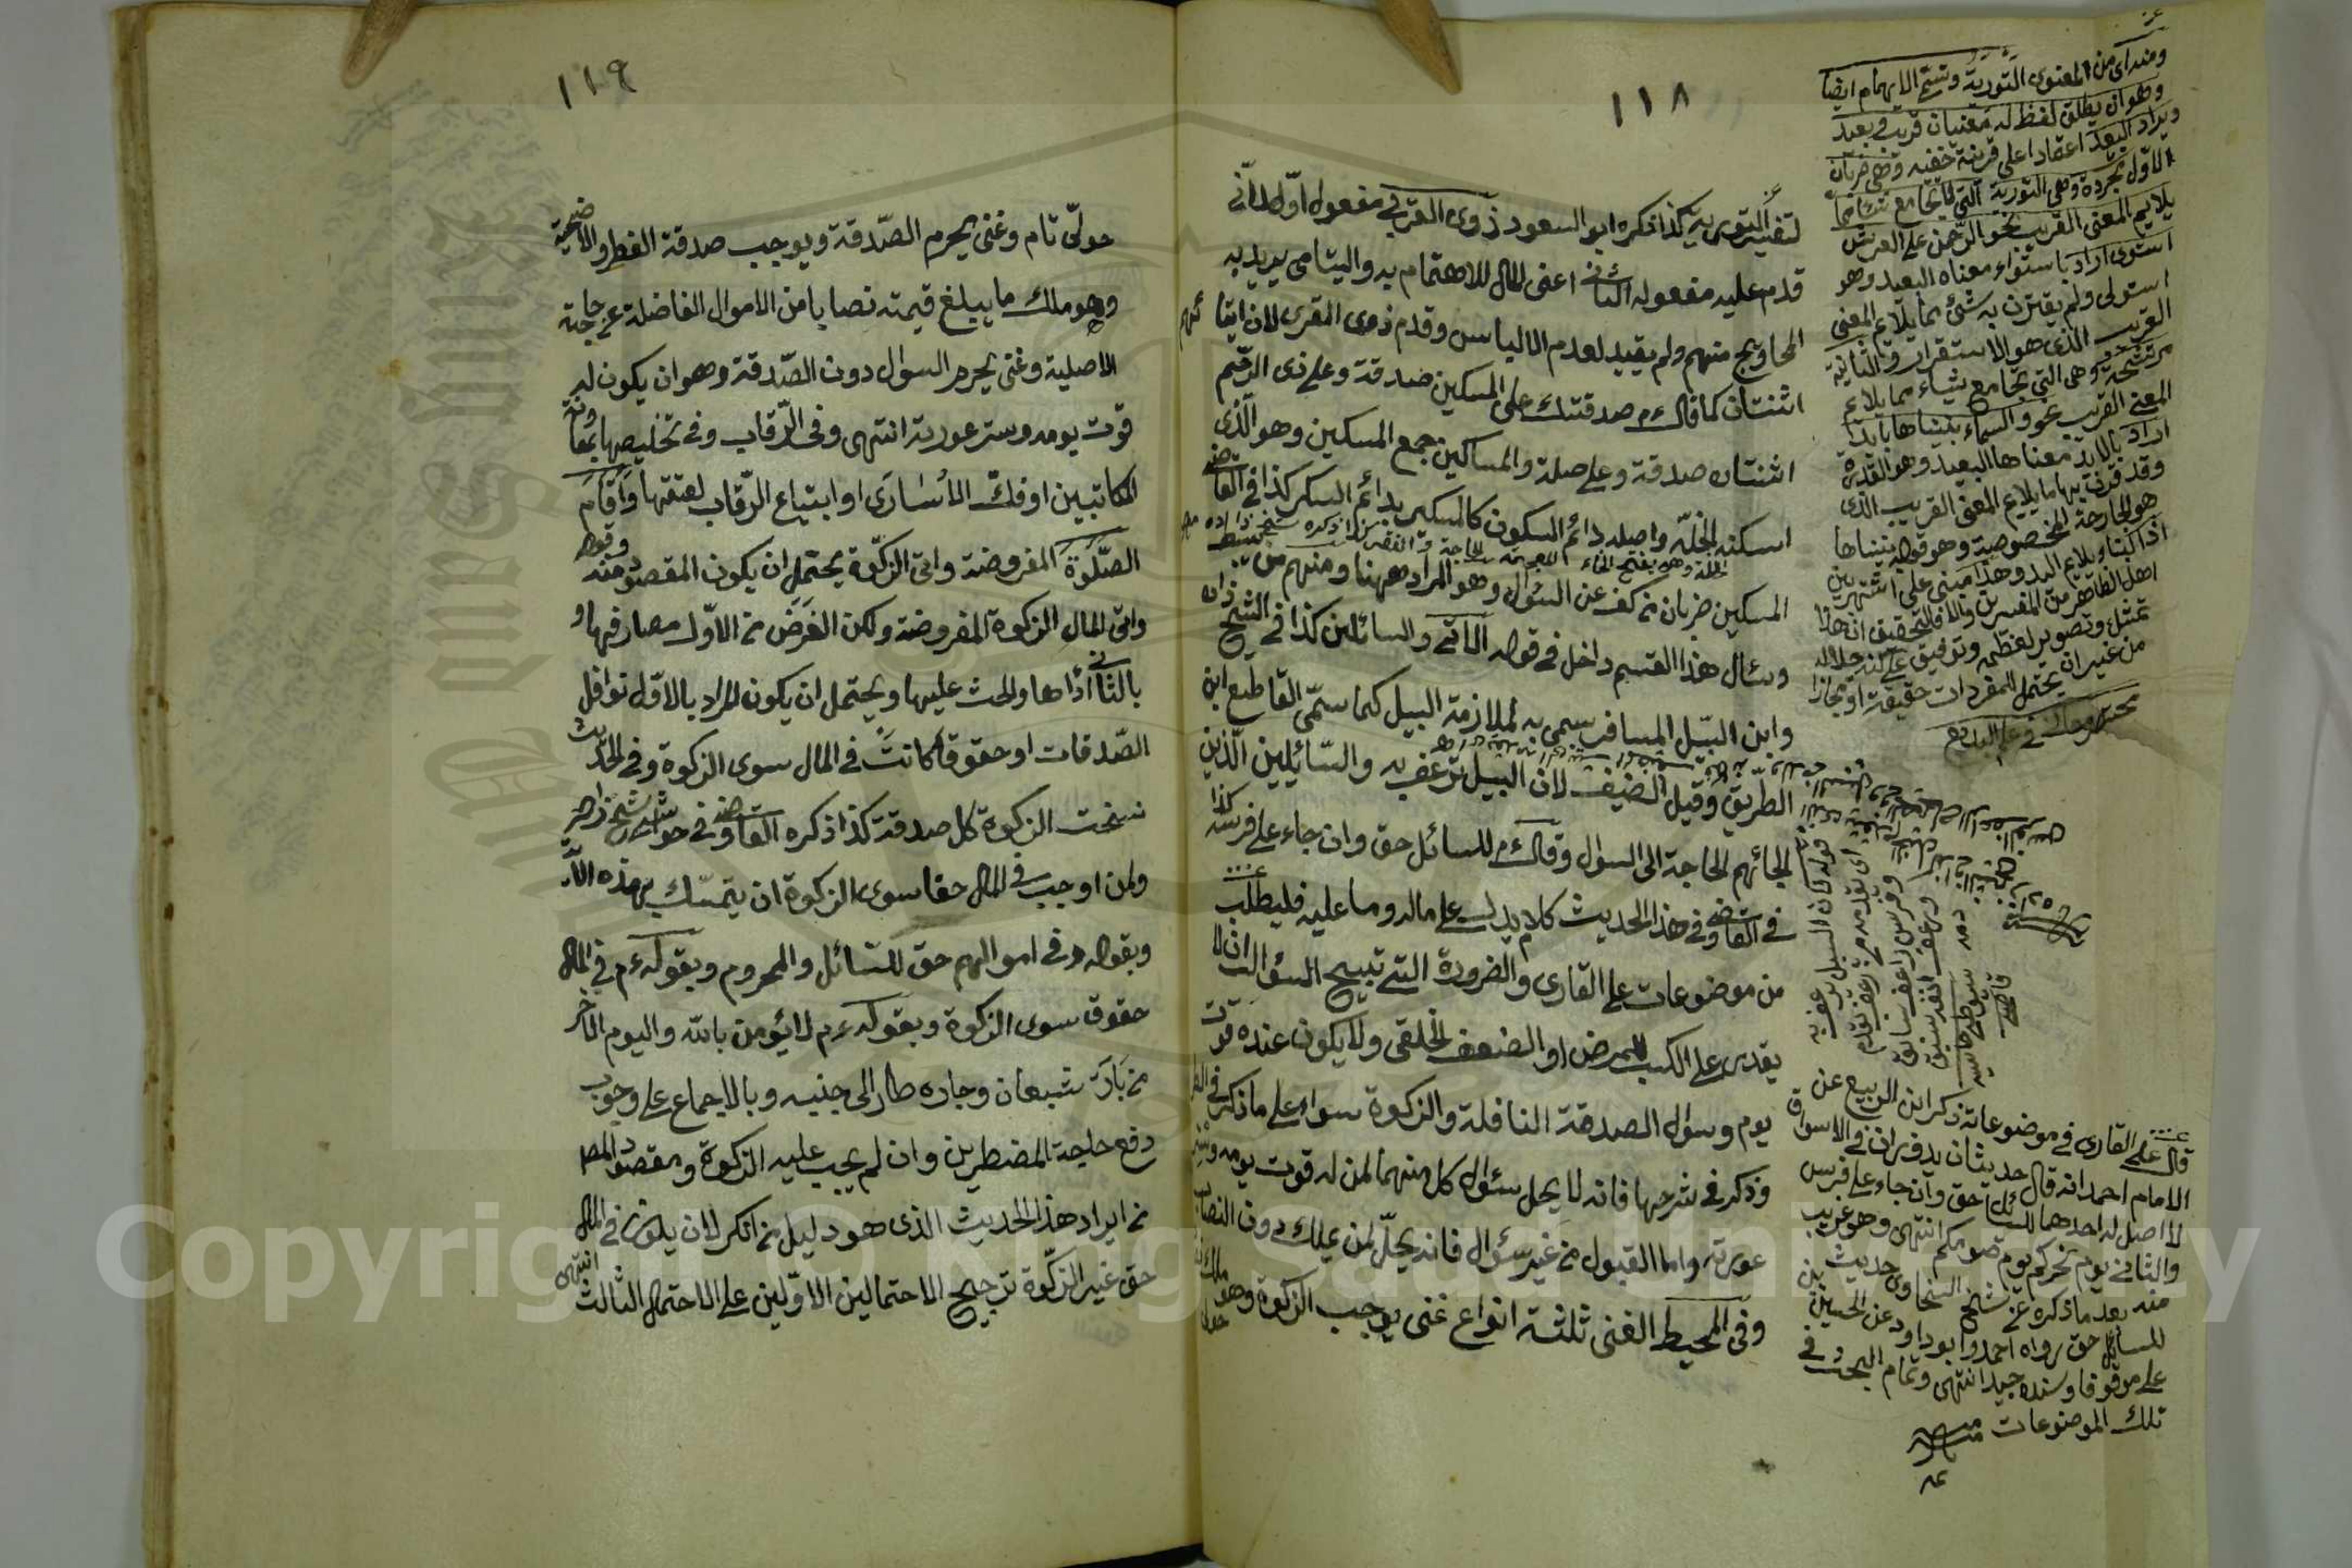 ١١٨
لتفسير التورية كذا ذكره ابو السعود ذوى القربى مفعول اوّل لآتى
قدم عليه مفعوله الثانى اعنى المال للاهتمام به واليتامى يريد به
المحاويج منهم ولم يقيد لعدم الالباس وقدم ذوى القربى لان ايتاءهم
اثنتان كما قال ءم صدقتك على المسكين صدقة وعلى ذى الرّحم
اثنتان صدقة وعلى صلة والمساكين جمع المسكين وهو الّذى
اسكنه الخلّة واصله دائم السكون كالمسكير لدائم السكر كذا فى القاضى
المسكين ضربان من كف عن السؤال وهو المراد ههنا ومنهم من ينبسط
وسئال هذا القسم داخل فى قوله الآتى والسائلين كذا فى الشيخ زاده
وابن السّبيل المسافر سمى به لملازمة السبيل كما سمّى القاطع ابن
الطّريق وقيل الضيف لان السبيل ترعف به والسّائيلين الّذين
الجائهم الحاجة الى السؤال وقال ءم للسائل حق وان جاء على فرسه كذا
فى القاضى وفى هذا الحديث كلام يدل على ماله وما عليه فليطلب
من موضوعات على القارى والضرورة التى تبيح السؤال ان لا
يقدر على الكسب للمرض او الضعف الخلقى ولا يكون عنده قوت
يوم وسؤال الصدقة النافلة والزكوة سواء على ما ذكر فى
وذكر فى شرحها فانه لا يحل سئوال كل منهما لمن له قوت يومه وستر
عورته واما القبول من غير سئوال فانه يحلّ لمن يملك دون النصاب
وفى المحيط الغنى ثلثة انواع غنى يوجب الزكوة وهو ملك
ومنه اى من المعنوى التورية وتسمّى الايهام ايضا
وهو ان يطلق لفظ له معنيان قريب وبعيد
ويراد البعيد اعتمادا على قرينة خفية وهى ضربان
الاوّل مجردة وهى التورية الّتى لا تجامع شيئا مما
يلايم المعنى القريب نحو الرّحمن على العرش
استوى اراد باستوا معناه البعيد وهو
استولى ولم يقترن به شئ مما يلايم المعنى
القريب الذى هو الاستقرار والثانية
مرشحة وهى التى تجامع شيئا مما يلايم
المعنى القريب نحو والسماء بنيناها بايد
اراد بالايد معناها البعيد وهو القدرة
وقد قرن بها ما يلايم المعنى القريب الذى
هو الجارحة المخصوصة وهو قوله بنيناها
اذ البنا يلايم اليد وهذا مبنى على ما اشتهر بين
اهل الظاهر من المفسرين والا فالتحقيق ان هذا
تمثيل وتصوير لعظمته وتوقيف على كنه جلاله
من غير ان يتحمل للمفردات حقيقة او مجازا
قوله فان السبيل ترعف به
قال على القارى فى موضوعاته ذكر ابن الربيع عن
الامام احمد انه قال حديثان يدوران فى الاسواق
لا اصل له احدهما للسائل حق وان جاء على فرس
والثانى يوم نحركم يوم صومكم انتهى وهو غريب
منه بعد ما ذكره عن شيخ السخاوى حديث
للسائل حق رواه احمد وابو داود عن الحسين بن
على موقوفا وسنده جيد انتهى وتمام البحث فى
تلك الموضوعات
١١٩
حولىّ تام وغنى يحرم الصّدقة ويوجب صدقة الفطر والاضحية
وهو ملك ما يبلغ قيمته نصابا من الاموال الفاضلة عن حاجته
الاصلية وغنى يحرم السؤال دون الصّدقة وهو ان يكون له
قوت يومه وستر عورته انتهى وفى الرّقاب وفى تخليصها بمعاونة
المكاتبين او فكّ الأسارَى او ابتياع الرّقاب لعتقها وَاَقَامَ
الصَّلوةَ المفروضة واتى الزكّوة يحتمل ان يكون المقصود منه وقوله
واتى المال الزكوة المفروضة ولكن الغَرَضَ من الاوّل مصارفها و
بالثانى أداها والحث عليها ويحتمل ان يكون المراد بالاوّل نوافل
الصّدقات او حقوقا كانتَ فى المال سوى الزكوة وفى الحديث
نسخت الزكوة كل صدقة كذا ذكره القاضى وفى حواشى شيخ زاده
ولمن اوجب فى المال حقا سوى الزكوة ان يتمسّك بهذه الآ..
وبقوله وفى اموالهم حق للسّائل والمحروم وبقوله ءم فى المال
حقوق سوى الزكوة وبقوله ءم لا يؤمن بالله واليوم الآخر
من بَاتَ شبعان وجاره طار الى جنبه وبالاجماع على وجوب
دفع حاجة المضطرين وان لم يجب عليه الزكوة ومقصود المص
من ايراد هذا الحديث الذى هو دليل من انكر لان يكون فى المال
حق غير الزكّوة ترجيح الاحتمالين الاوّلين على الاحتمال الثالث انتهى
Copyright © King Saud University